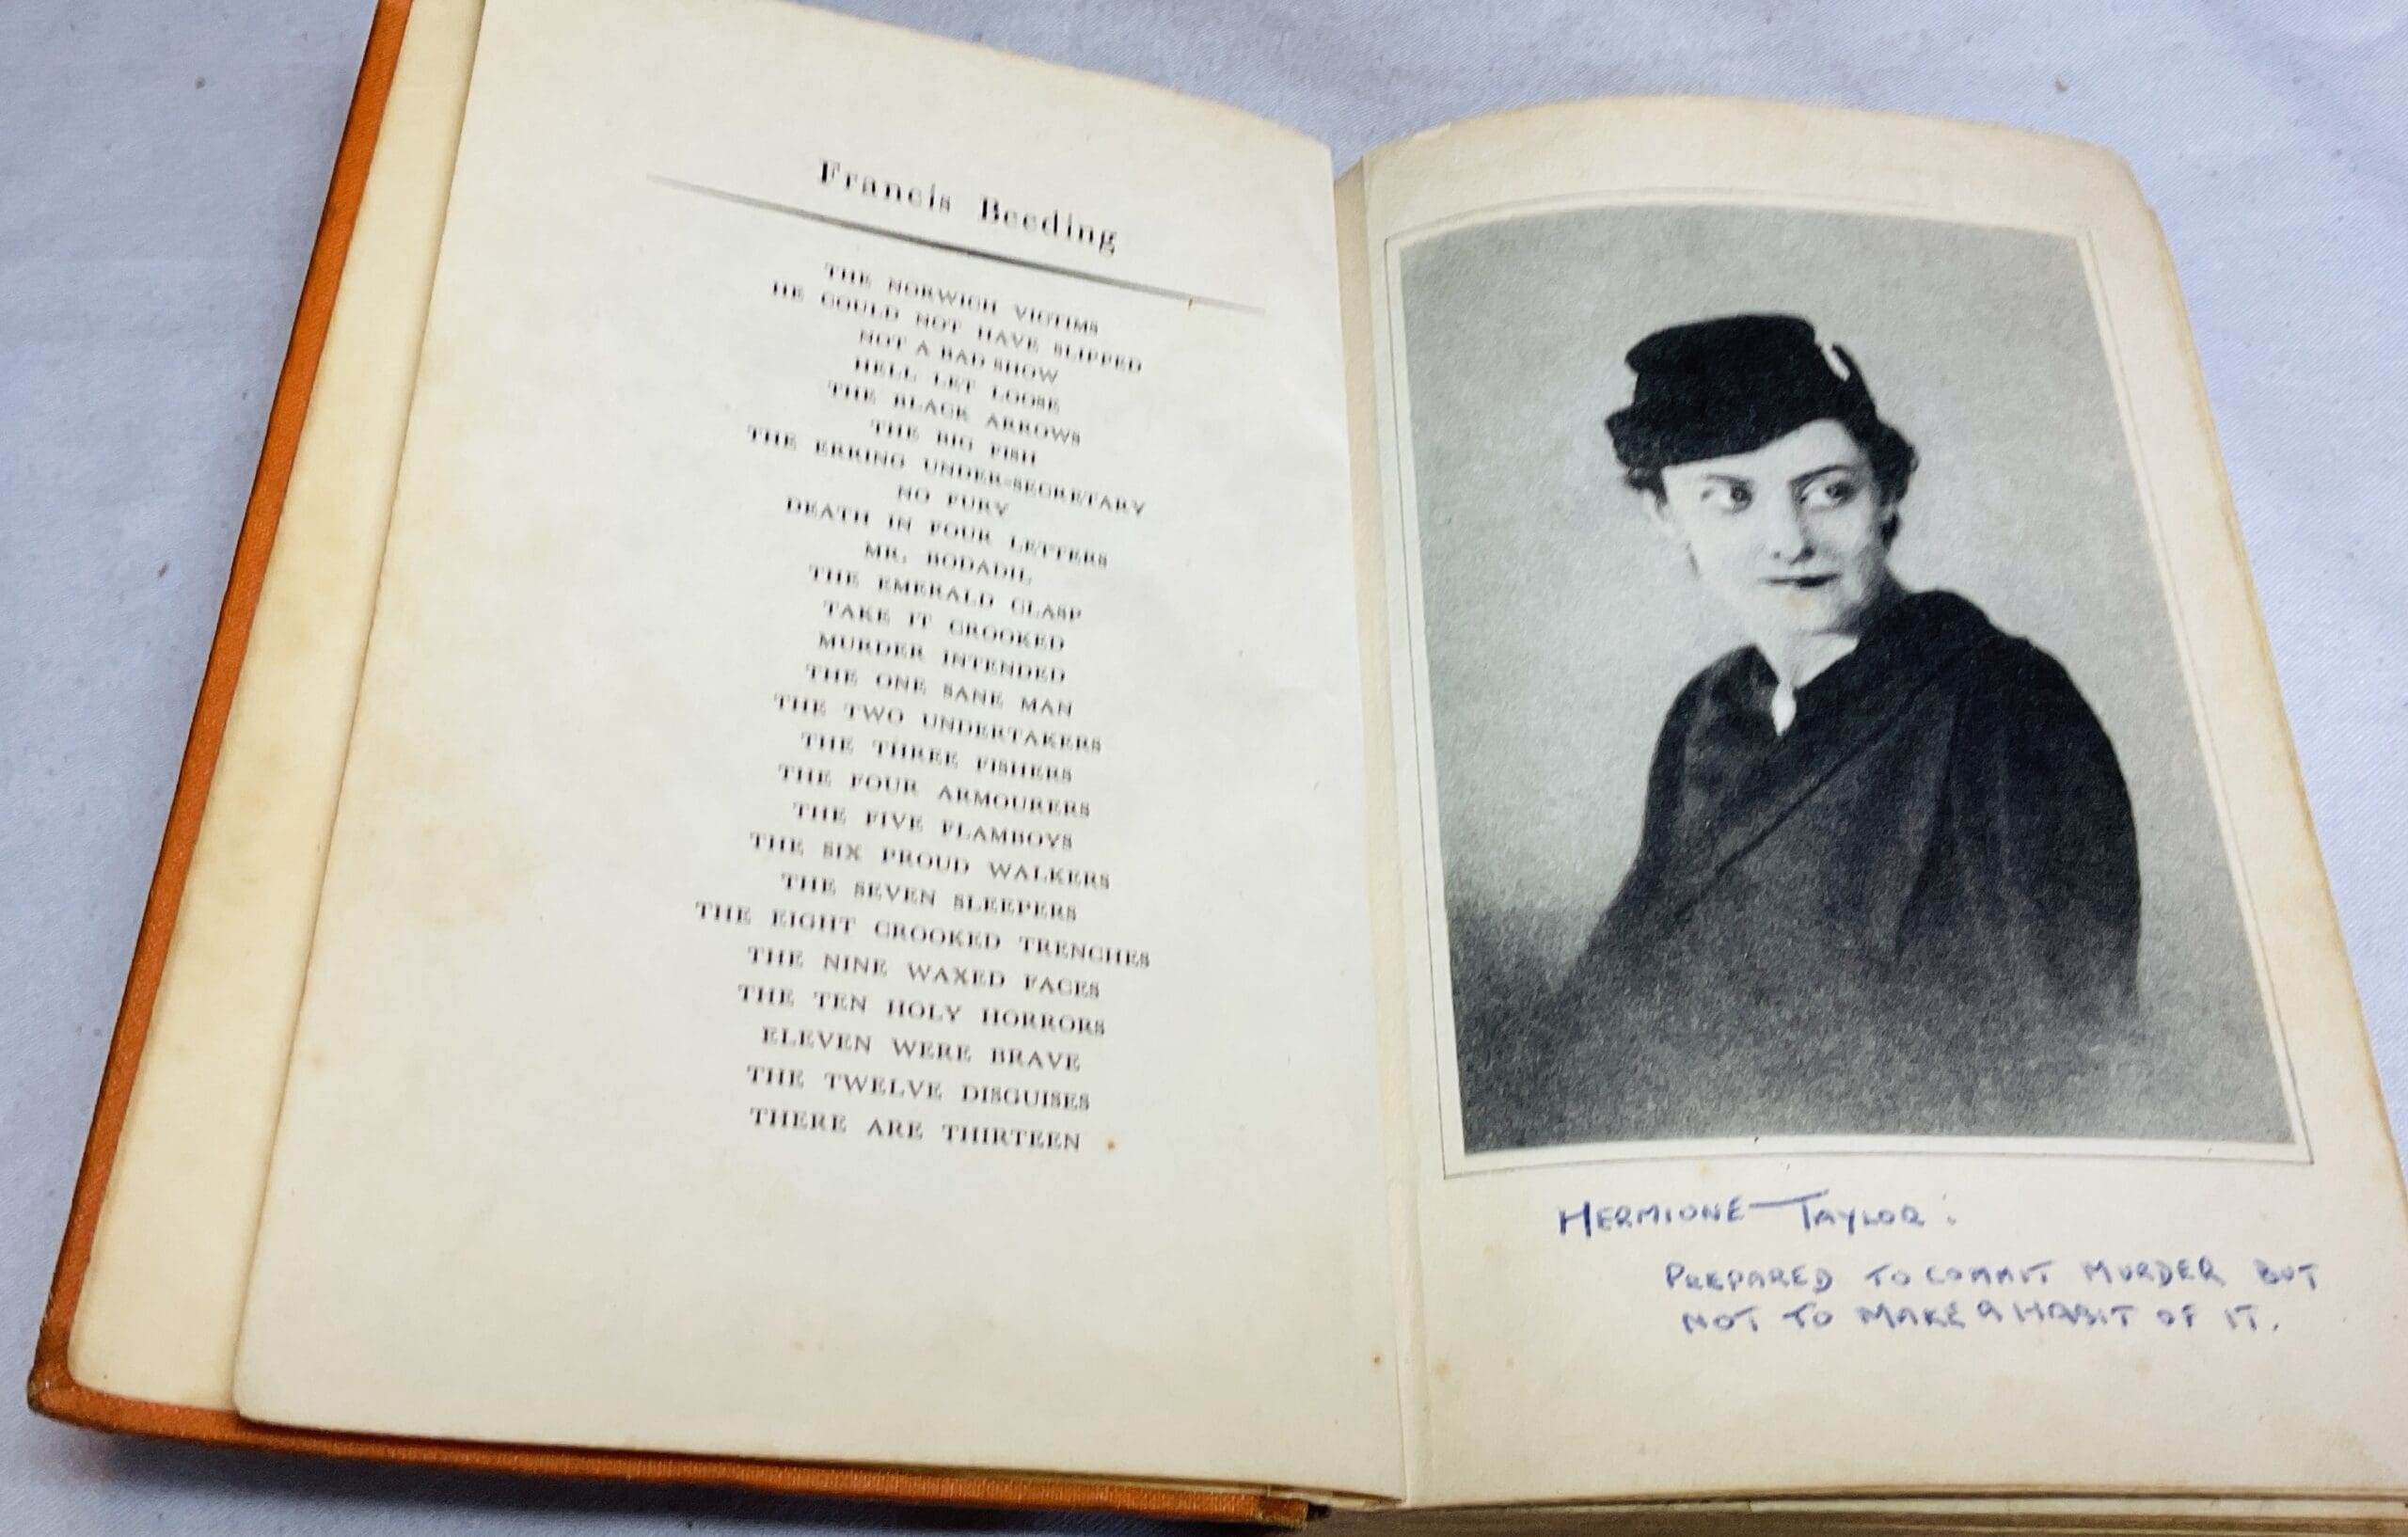 Francis Beeding
THE NORWICH VICTIMS
HE COULD NOT HAVE SLIPPED
NOT A BAD SHOW
HELL LET LOOSE
THE BLACK ARROWS
THE BIG FISH
THE ERRING UNDER-SECRETARY
NO FURY
DEATH IN FOUR LETTERS
MR. BOBADIL
THE EMERALD CLASP
TAKE IT CROOKED
MURDER INTENDED
THE ONE SANE MAN
THE TWO UNDERTAKERS
THE THREE FISHERS
THE FOUR ARMOURERS
THE FIVE FLAMBOYS
THE SIX PROUD WALKERS
THE SEVEN SLEEPERS
THE EIGHT CROOKED TRENCHES
THE NINE WAXED FACES
THE TEN HOLY HORRORS
ELEVEN WERE BRAVE
THE TWELVE DISGUISES
THERE ARE THIRTEEN
HERMIONE TAYLOR:
PREPARED TO COMMIT MURDER BUT
NOT TO MAKE A HABIT OF IT.